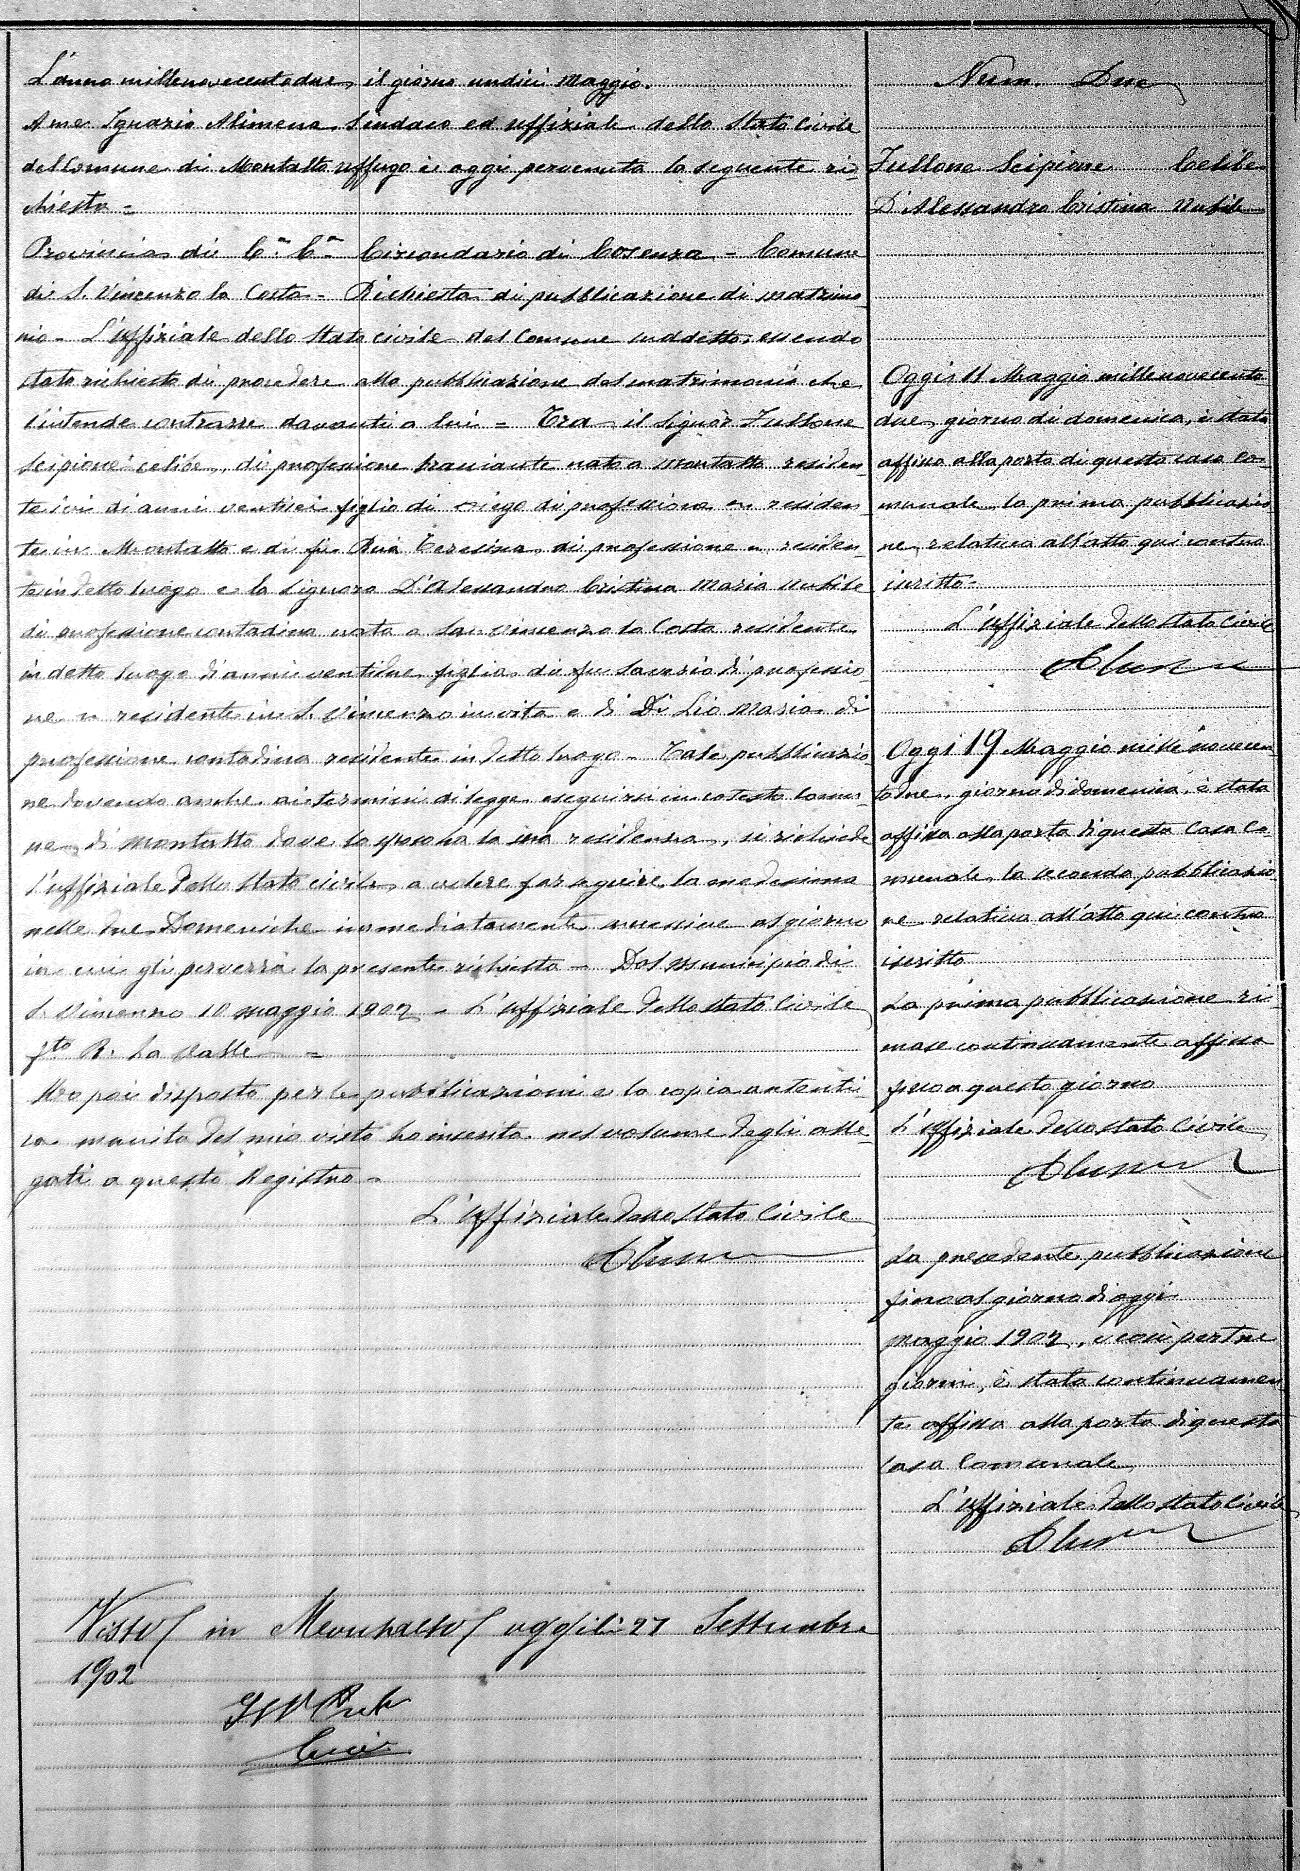 L'anno millenovecentodue, il giorno undici Maggio.
A me Ignazio Alimena Sindaco ed uffiziale dello Stato Civile
del Comune di Montalto Uffugo è oggi pervenuta la seguente ri-
chiesta =
Provincia di C.a C.a Circondario di Cosenza - Comune
di S. Vincenzo la Costa - Richiesta di pubblicazione di matrimo-
nio - L'uffiziale dello Stato civile del Comune suddetto, essendo
stato richiesto di procedere alla pubblicazione del matrimonio che
s'intende contrarre davanti a lui = Tra il Signor Fullone
Scipione celibe, di professione bracciante nato a Montalto residen-
te ivi di anni ventisei figlio di Diego di professione = residen-
te in Montalto e di fu Teresina di professione = residen-
te in detto luogo e la Signora D'Alessandro Cristina Maria nubile
di professione contadina nata a San Vincenzo la Costa residente
in detto luogo d'anni ventidue figlia di fu Saverio di professio-
ne = residente in S. Vincenzo in vita e di Di Lio Maria di
professione contadina residente in detto luogo - Tale pubblicazio-
ne dovendo anche ai termini di legge eseguirsi in cotesto Comu-
ne di Montalto dove lo sposo ha la sua residenza, si richiede
l'uffiziale dello Stato civile a volere far seguire la medesima
nelle due Domeniche immediatamente successive al giorno
in cui gli perverrà la presente richiesta - Dal Municipio di
S. Vincenzo 10 maggio 1902 - L'uffiziale dello Stato Civile
f.to R. La Valle =
Ho poi disposto per le pubblicazioni e la copia autenti-
ca munita del mio visto ho inserta nel volume degli alle-
gati a questo Registro -
L'uffiziale dello Stato Civile
Visto in Montalto oggi li 27 Settembre
1902
Num. Due
Fullone Scipione Celibe
D'Alessandro Cristina Nubile
Oggi 11 Maggio millenovecento
due, giorno di domenica, è stata
affissa alla porta di questa casa Co-
munale la prima pubblicazio-
ne relativa all'atto qui contro
iscritto -
L'uffiziale dello Stato Civile
Oggi 19 Maggio millenovecen-
todue, giorno di domenica, è stata
affissa alla porta di questa Casa Co-
munale la seconda pubblicazio-
ne relativa all'atto qui contro
iscritto
La prima pubblicazione ri-
mase continuamente affissa
fino a questo giorno
L'uffiziale dello Stato Civile
La precedente pubblicazione
fino al giorno di oggi
maggio 1902, e così per tre
giorni, è stata continuamen-
te affissa alla porta di questa
Casa Comunale
L'uffiziale dello Stato Civile